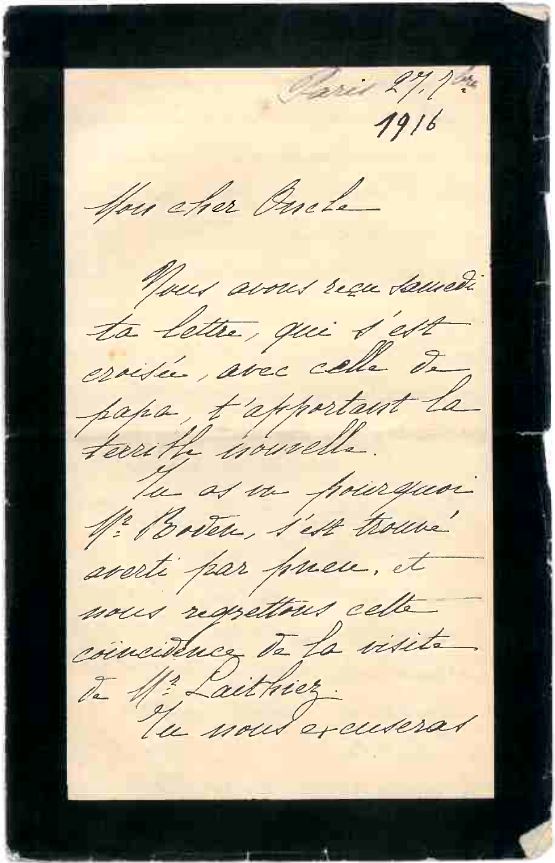 Paris 27, 7bre
1916
Mon cher Oncle
Nous avons reçu samedi
ta lettre, qui s'est
croisée, avec celle de
papa, t'apportant la
terrible nouvelle.
Tu as vu pourquoi
Mr. Boden, s'est trouvé
averti par pneu, et
nous regrettons cette
coïncidence de la visite
de Mr. Laithiez.
Tu nous excuseras